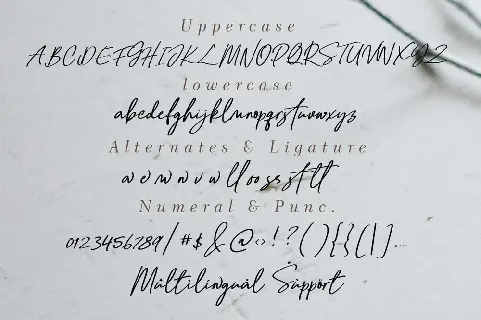 Uppercase
ABCDEFGHIJKLMNOPQRSTUVWXYZ
lowercase
abcdefghijklmnopqrstuvwxyz
Alternates & Ligature
a e m n u w ll oo ss st tt
Numeral & Punc.
0123456789/ #$&@<>!?(){}[|]
Multilingual Support